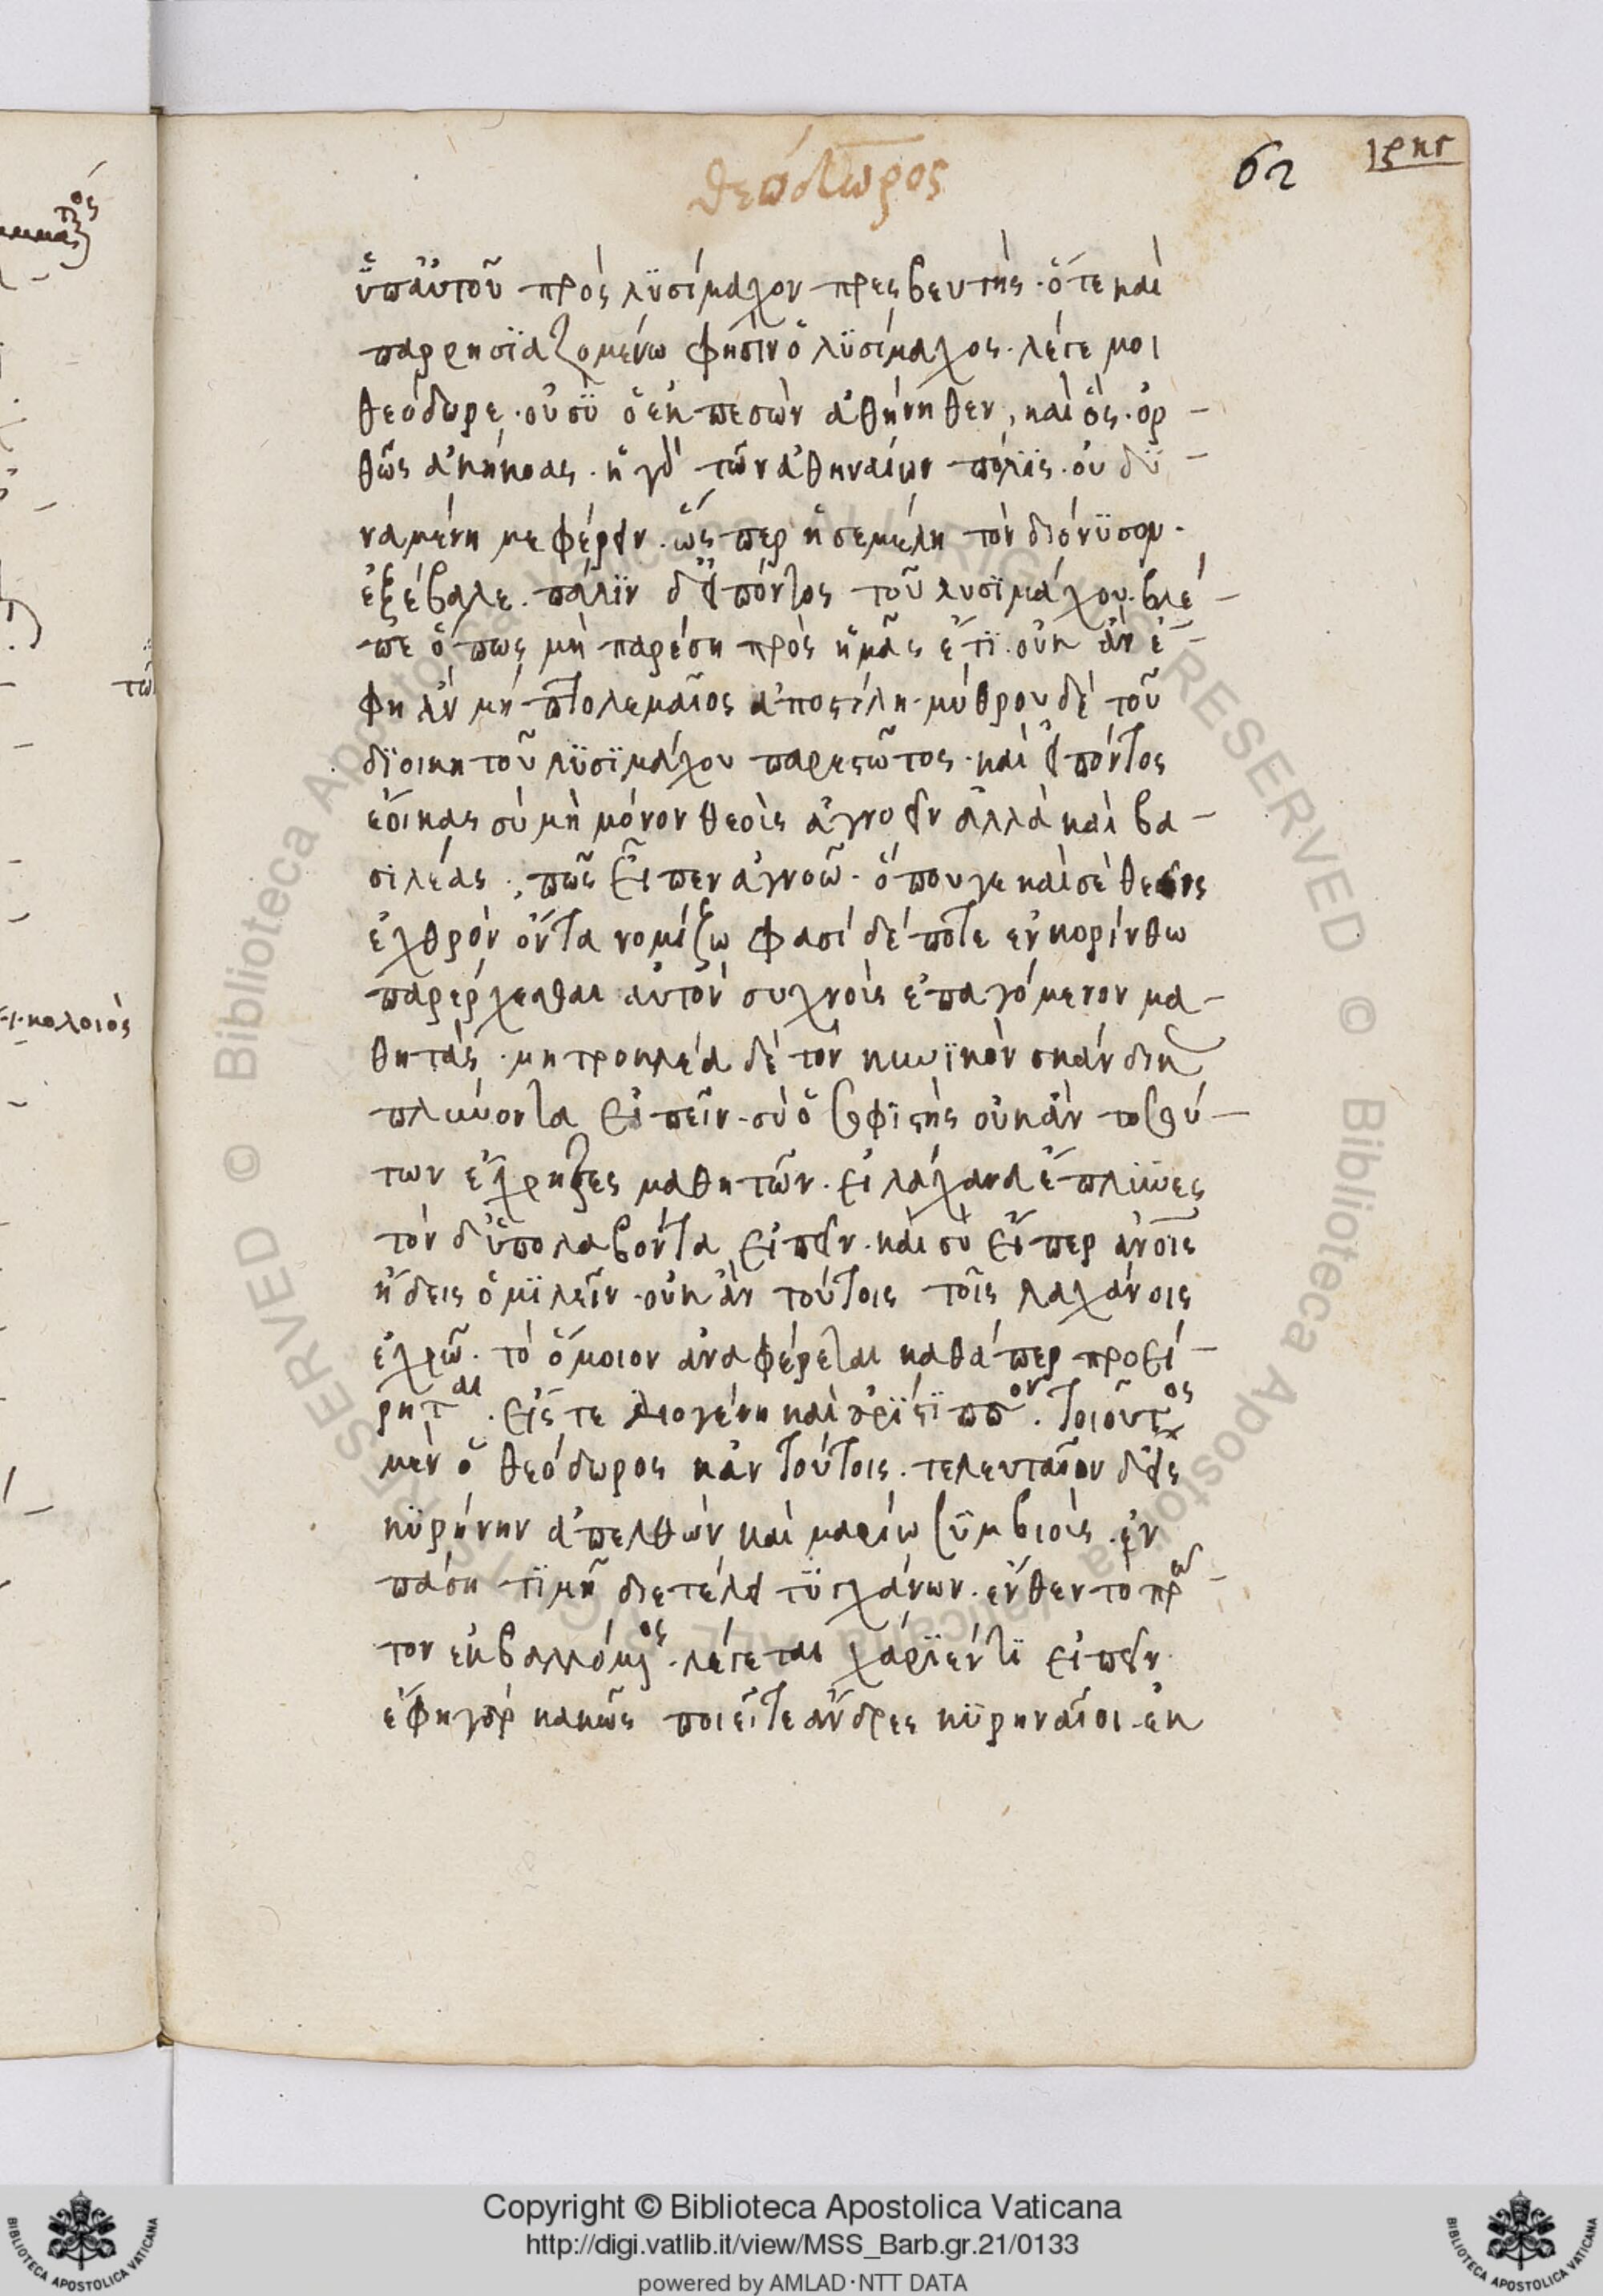 θεόδωρος
62
ὑπ' αὐτοῦ πρὸς λϋσίμαχον πρεσβευτής· ὅτε καὶ
παρρησϊαζομένω φησὶν ὁ λϋσίμαχος· λέγε μοι
θεόδωρε· οὐ σϋ ὁ ἐκπεσὼν ἀθήνηθεν, καὶ ὃς· ὀρ-
θῶς ἀκήκοας· ἡ γὰρ τῶν ἀθηναίων πόλϊς· οὐ δϋ-
ναμένη με φέρειν· ὥσπερ ἡ σεμέλη τὸν διόνϋσον·
ἐξέβαλε· πάλϊν δ' εἰπόντος τοῦ λυσϊμάχου· βλέ-
πε ὅπως μὴ παρέση πρὸς ἡμᾶς ἔτϊ· οὐκ ἂν ἔ-
φη ἂν μὴ πτολεμαῖος ἀποστείλη· μύθρου δὲ τοῦ
δϊοικητοῦ λϋσϊμάχου παρεστῶτος· καὶ εἰπόντος
ἔοικας σὺ μὴ μόνον θεοὶς ἀγνοεῖν ἀλλὰ καὶ βα-
σιλέας·, πῶς εἶπεν ἀγνοῶ· ὅπου γε καὶ σὲ θεοῖς
ἐχθρὸν ὄντα νομίζω φασί δέ ποτε ἐν κορίνθω
παρέρχεσθαι αὐτὸν συχνοὶς ἐπαγόμενον μα-
θητάς· μητροκλέα δὲ τὸν κυνϊκὸν σκάνδικ
πλύνοντα εἰπεῖν· σὺ ὁ σοφϊστὴς οὐκ ἂν τοσού-
των ἔχρηζες μαθητῶν· εἰ λάχανα ἔπλϋνες
τὸν δ' ὑπολαβόντα εἰπεῖν· καὶ σὺ εἴπερ ἀνοῖς
ἤδεις ὁμϊλεῖν· οὐκ ἂν τούτοις τοῖς λαχάνοις
ἐχρῶ· τὸ ὅμοιον ἀναφέρεται καθάπερ προεί-
ρηται· εἴς τε διογένη καὶ ἀρίστϊππον· τοιοῦτος
μὲν ὁ θεόδωρος κἀν τούτοις· τελευταῖον δ' εἰς
κϋρήνην ἀπελθὼν καὶ μαρίω ξϋμβιοὶς· ἐν
πάση τϊμῆ διετέλει τϋγχάνων· ἔνθεν τὸ πρῶ-
τον ἐκβαλλόμενος· λέγεται χάρϊέντϊ εἰπεῖν·
ἔφη γὰρ κακῶς ποιεῖτε ἄνδρες κϋρηναῖοι· ἐκ
Copyright © Biblioteca Apostolica Vaticana
http://digi.vatlib.it/view/MSS_Barb.gr.21/0133
powered by AMLAD·NTT DATA